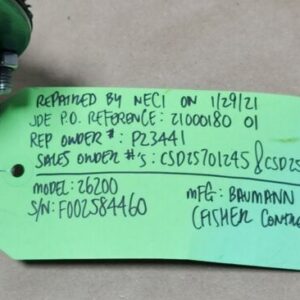 REPAIRED BY NECI ON 1/29/21
JDE P.O. REFERENCE: 21000180 01
REP ORDER #: P23441
SALES ORDER #'S: CSD25701245 & CSD25
MODEL: 26200
S/N: F002584460
MFG: BAUMANN
(FISHER CONTRO